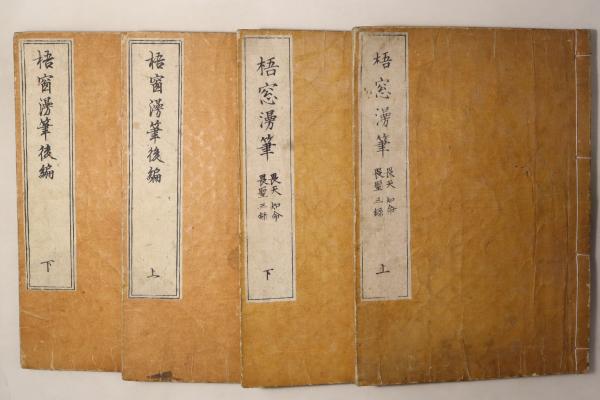 梧窓漫筆
畏天 知命
畏聖 三録
上
梧窓漫筆
畏天 知命
畏聖 三録
下
梧窗漫筆後編
上
梧窗漫筆後編
下